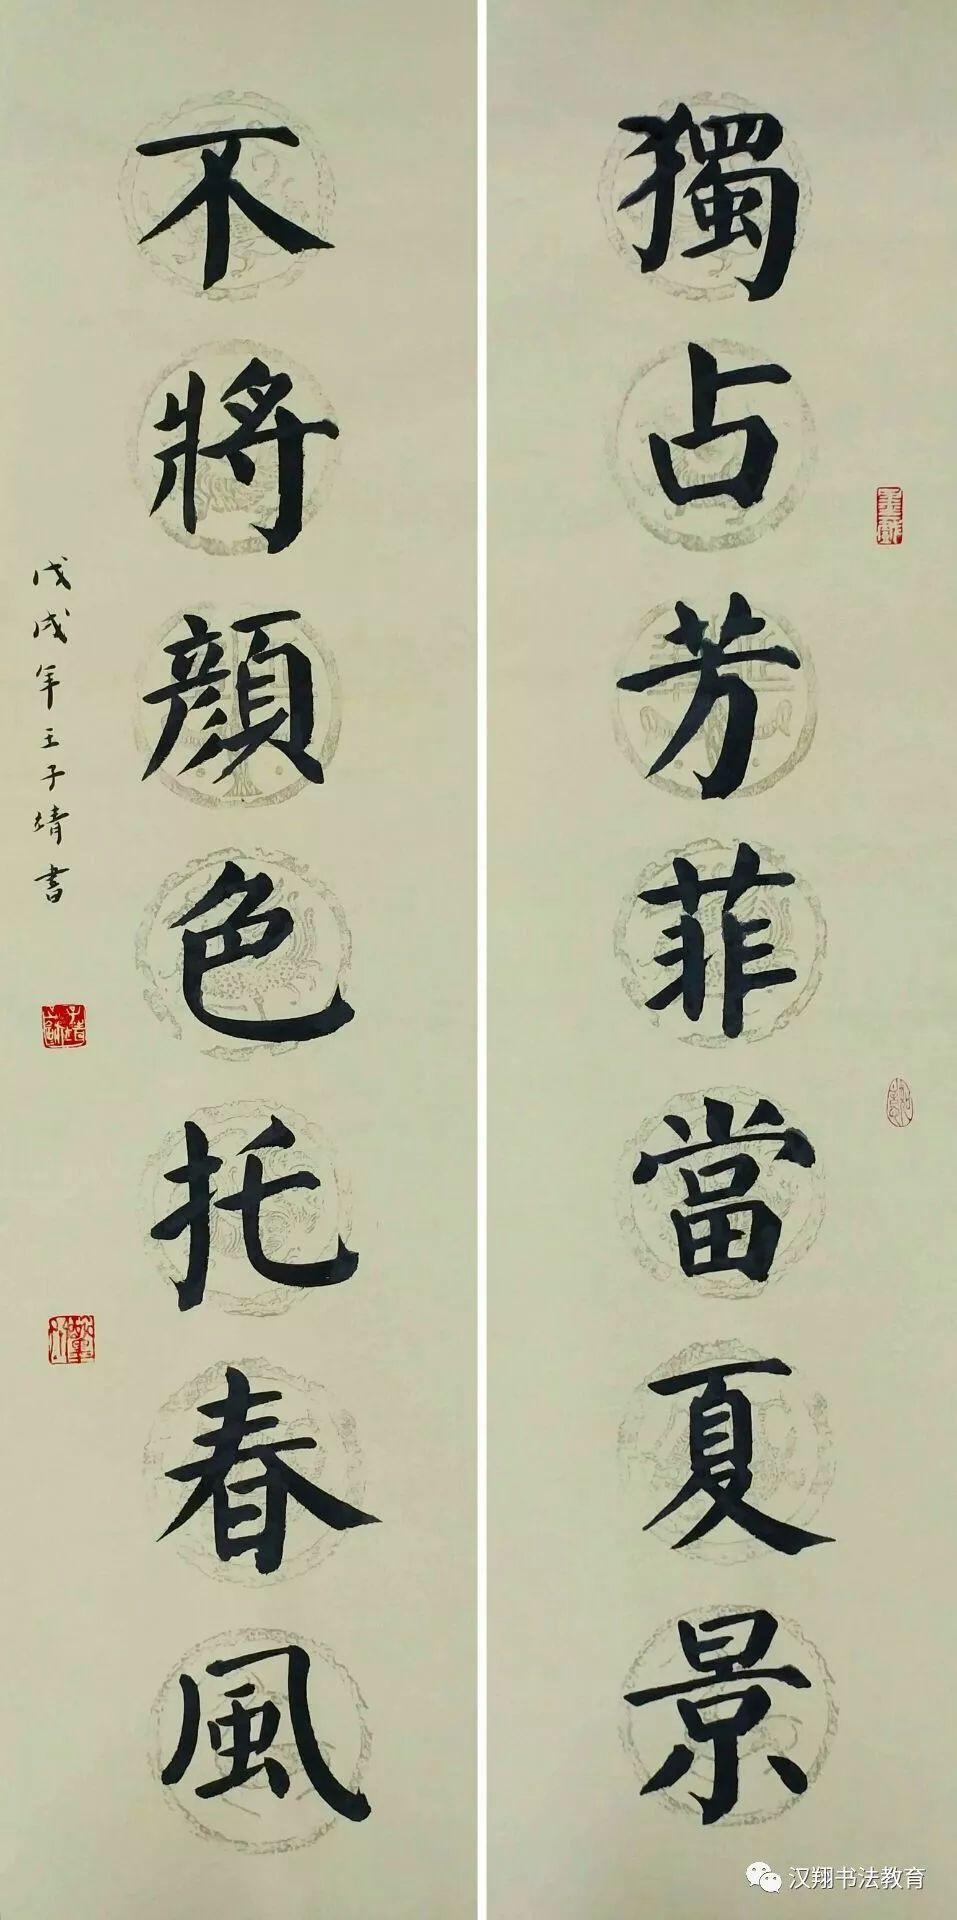 獨占芳菲當夏景
不將顏色托春風
戊戌年王子靖書
汉翔书法教育